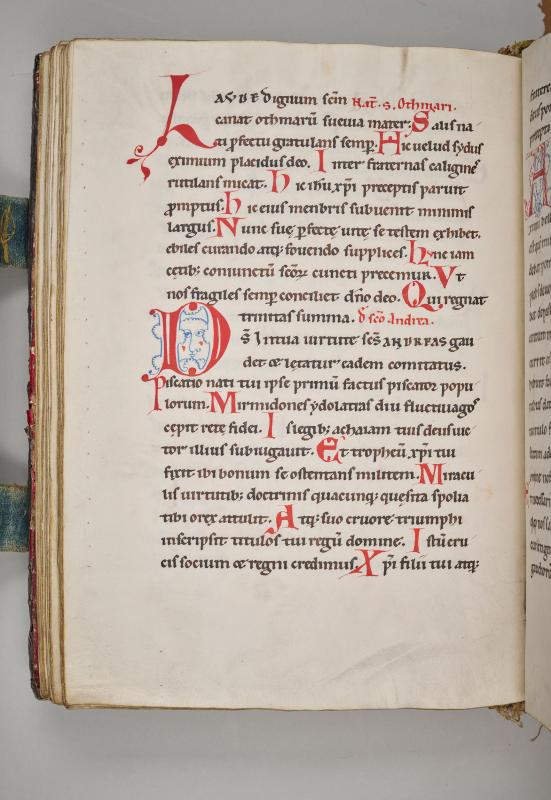 LAVDE dignum scm Nat. s. Othmari.
canat othmarū sueuia mater; Salis na
ti pfectu gratulans semp. Hic uelud sydus
eximium placidus deo. Inter fraternas caligine
rutilans micat. Hic ihu xpi preceptis paruit
promptus. Hic eius menbris subuenit minimis
largus. Nunc suę pfectę uitę se testem exhibet.
ebiles curando atq; fouendo supplices. Hunc iam
cętib; coniunctū scōr cuncti precemur. Vt
nos fragiles semp conciliet dn̄o deo. Qui regnat
trinitas summa. d sc̄o Andrea.
DS̄ In tua uirtute sc̄s ANDREAS gau
det & lętatur eadem comitatus.
Piscatio nati tui ipse primū factus piscator popu
lorum. Mirmidones ydolatras diu fluctiuagos
cepit rete fidei. Is legib; achaiam tuis deuic
tor illius subiugauit. Et tropheū xpi tui
fixit ibi bonum se ostentans militem. Miracu
lis uirtutib; doctrinis quacunq; quesita spolia
tibi orex attulit. Atq; suo cruore triumphi
inscripsit titulos tui regū domine. Istū cru
cis socium & regni credimus. Xpi filii tui atq;